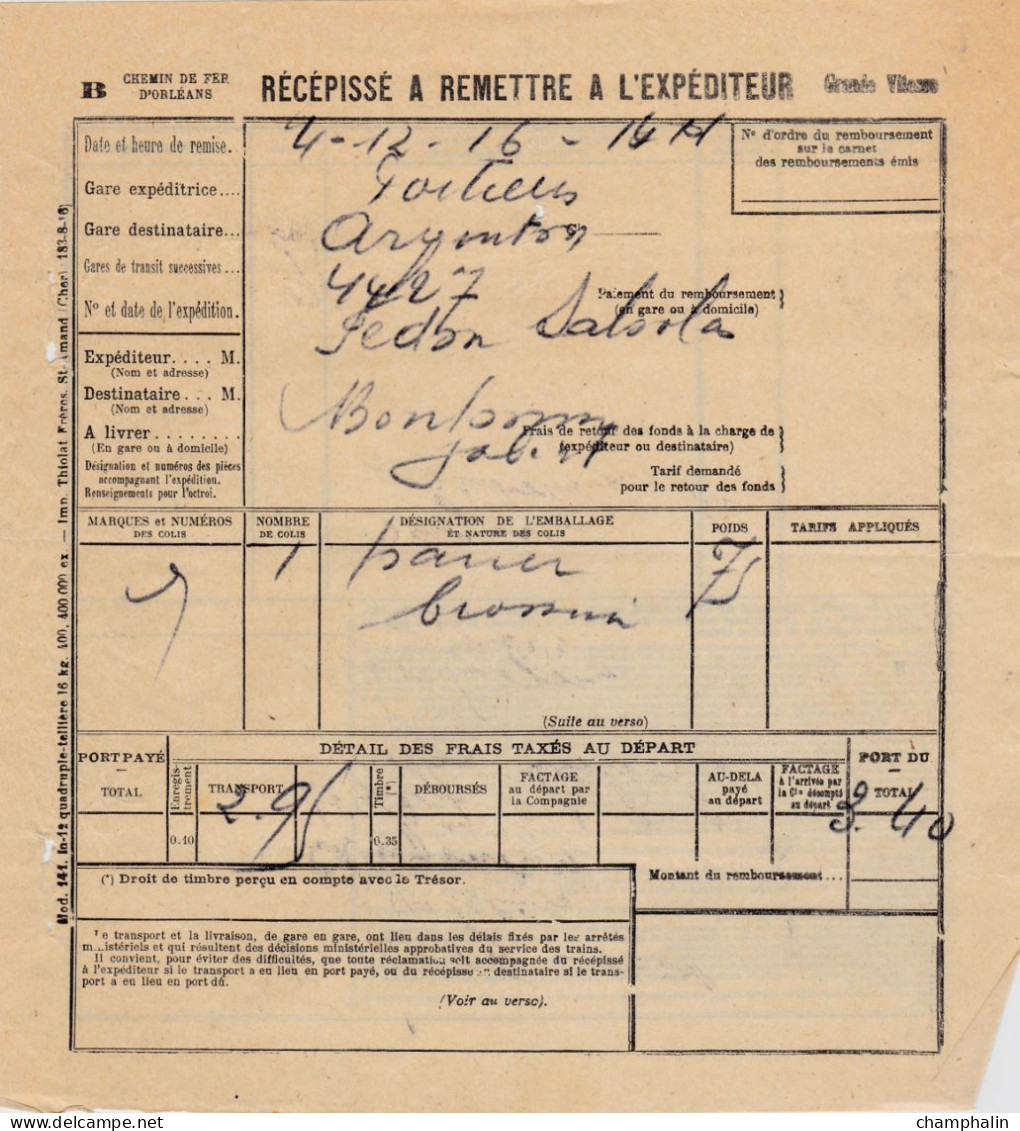 B CHEMIN DE FER D'ORLÉANS RÉCÉPISSÉ A REMETTRE A L'EXPÉDITEUR Grande Vitesse
Date et heure de remise. 4-12-16 - 14 H
Nº d'ordre du remboursement
sur le carnet
des remboursements émis
Gare expéditrice.... Poitiers
Gare destinataire... Argenton
Gares de transit successives ...
Nº et date de l'expédition. 4427
Paiement du remboursement
(en gare ou à domicile) }
Expéditeur.... M.
(Nom et adresse)
Destinataire... M.
(Nom et adresse)
A livrer........
(En gare ou à domicile)
Frais de retour des fonds à la charge de
(expéditeur ou destinataire) }
Désignation et numéros des pièces
accompagnant l'expédition.
Renseignements pour l'octroi.
Tarif demandé
pour le retour des fonds }
MARQUES et NUMÉROS
DES COLIS
NOMBRE
DE COLIS
DÉSIGNATION DE L'EMBALLAGE
ET NATURE DES COLIS
POIDS
TARIFS APPLIQUÉS
1 panier 75
(Suite au verso)
PORT PAYÉ
—
TOTAL
DÉTAIL DES FRAIS TAXÉS AU DÉPART
Enregistrement
0.10
TRANSPORT
2.95
Timbre (*)
0.35
DÉBOURSÉS
FACTAGE
au départ par
la Compagnie
AU-DELA
payé
au départ
FACTAGE
à l'arrivée par
la Cie décompté
au départ
PORT DU
—
TOTAL
3.40
(*) Droit de timbre perçu en compte avec le Trésor.
Montant du remboursement...
Le transport et la livraison, de gare en gare, ont lieu dans les délais fixés par les arrêtés
ministériels et qui résultent des décisions ministérielles approbatives du service des trains.
Il convient, pour éviter des difficultés, que toute réclamation soit accompagnée du récépissé
à l'expéditeur si le transport a eu lieu en port payé, ou du récépissé au destinataire si le trans-
port a eu lieu en port dû.
(Voir au verso).
Mod. 141. In-12 quadruple-tellière 16 kg. 400, 400.000 ex. — Imp. Thiolat Frères, St-Amand (Cher) 183-8-16)
champhalin